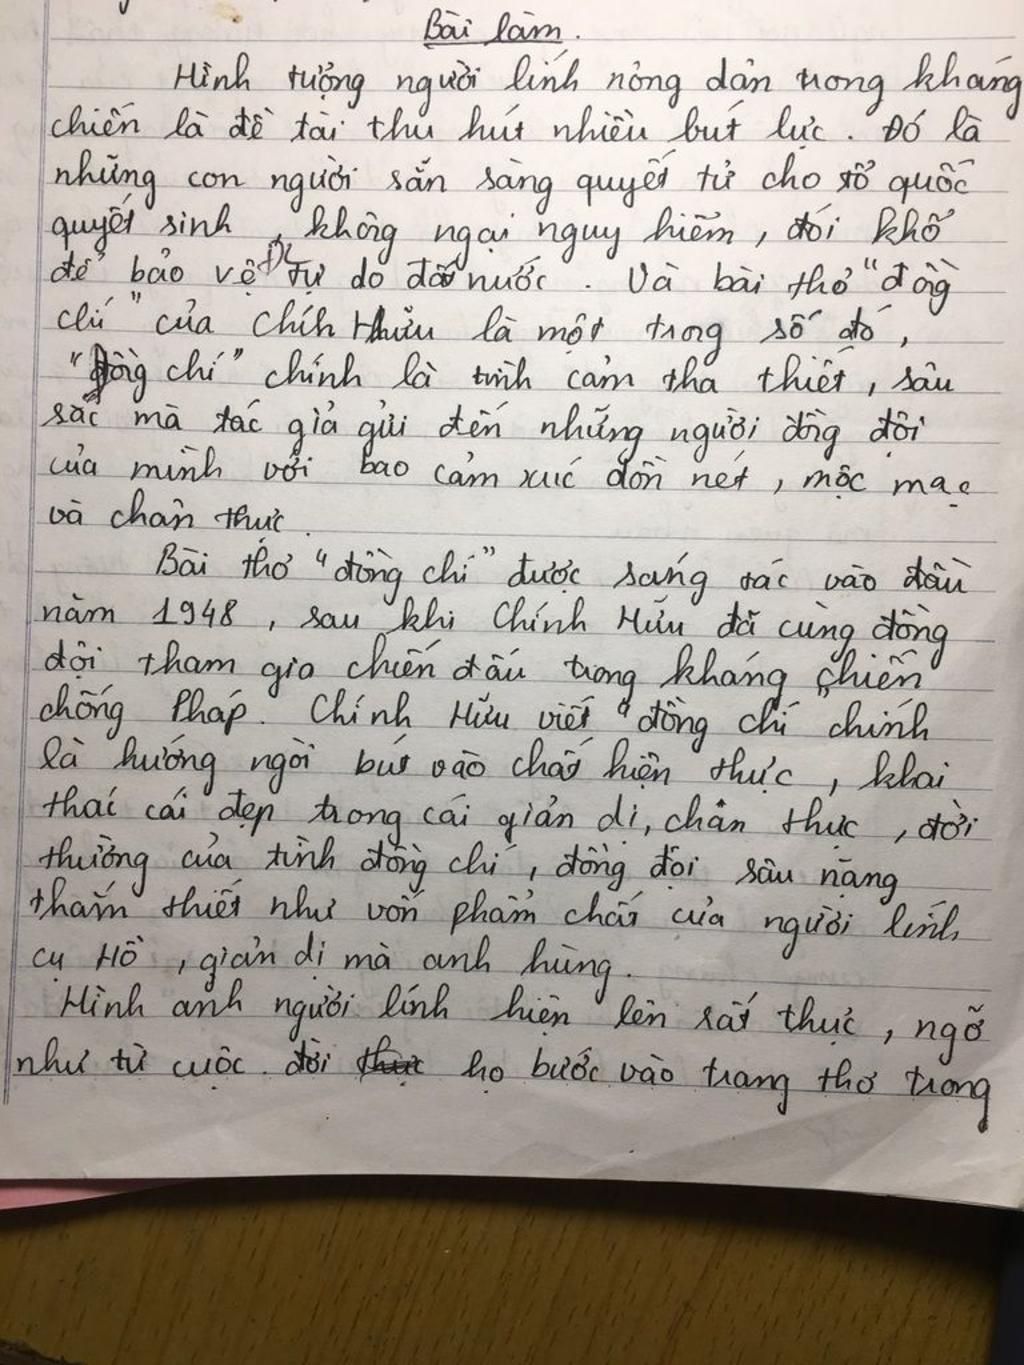 Bài làm.
Hình tượng người lính nông dân trong kháng
chiến là đề tài thu hút nhiều bút lực. Đó là
những con người sẵn sàng quyết tử cho tổ quốc
quyết sinh, không ngại nguy hiểm, đói khổ
để bảo vệ tự do đất nước. Và bài thơ "đồng
chí" của Chính Hữu là một trong số đó,
"Đồng chí" chính là tình cảm tha thiết, sâu
sắc mà tác giả gửi đến những người đồng đội
của mình với bao cảm xúc dồn nét, mộc mạc
và chân thực.
Bài thơ "đồng chí" được sáng tác vào đầu
năm 1948, sau khi Chính Hữu đã cùng đồng
đội tham gia chiến đấu trong kháng chiến
chống Pháp. Chính Hữu viết "đồng chí chính
là hướng ngòi bút vào chất hiện thực, khai
thác cái đẹp trong cái giản dị, chân thực, đời
thường của tình đồng chí, đồng đội sâu nặng
thắm thiết như vốn phẩm chất của người lính
cụ Hồ, giản dị mà anh hùng.
Hình anh người lính hiện lên rất thực, ngỡ
như từ cuộc đời họ bước vào trang thơ trong